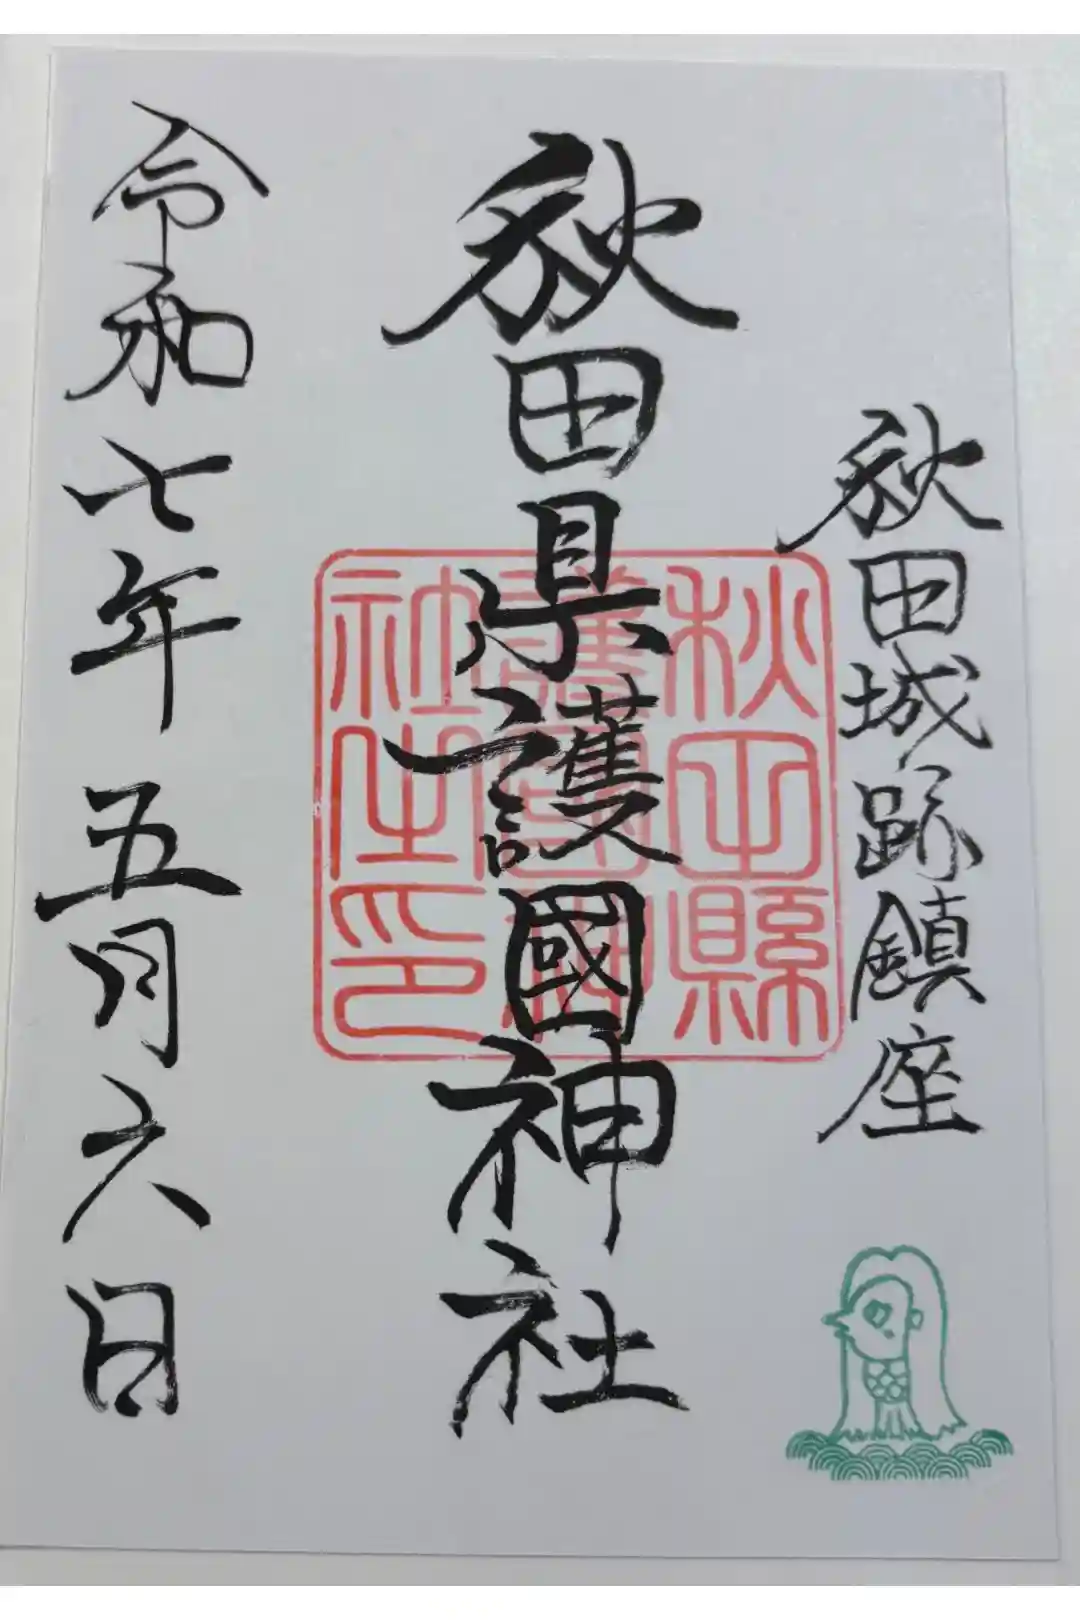 秋田城跡鎮座
秋田県護國神社
秋田縣
護國神
社之印
令和七年 五月六日